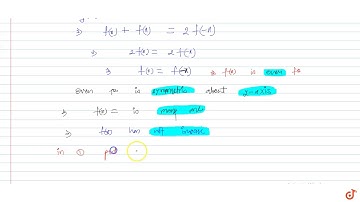 ⇒ f(x) + f(x) = 2 f(-x)
⇒ 2f(x) = 2 f(-x)
⇒ f(x) = f(-x) ⇒ f(x) is even fn
even fn is symmetric about y-axis
⇒ f(x) = is many one
⇒ f(x) has not inverse
in ① put